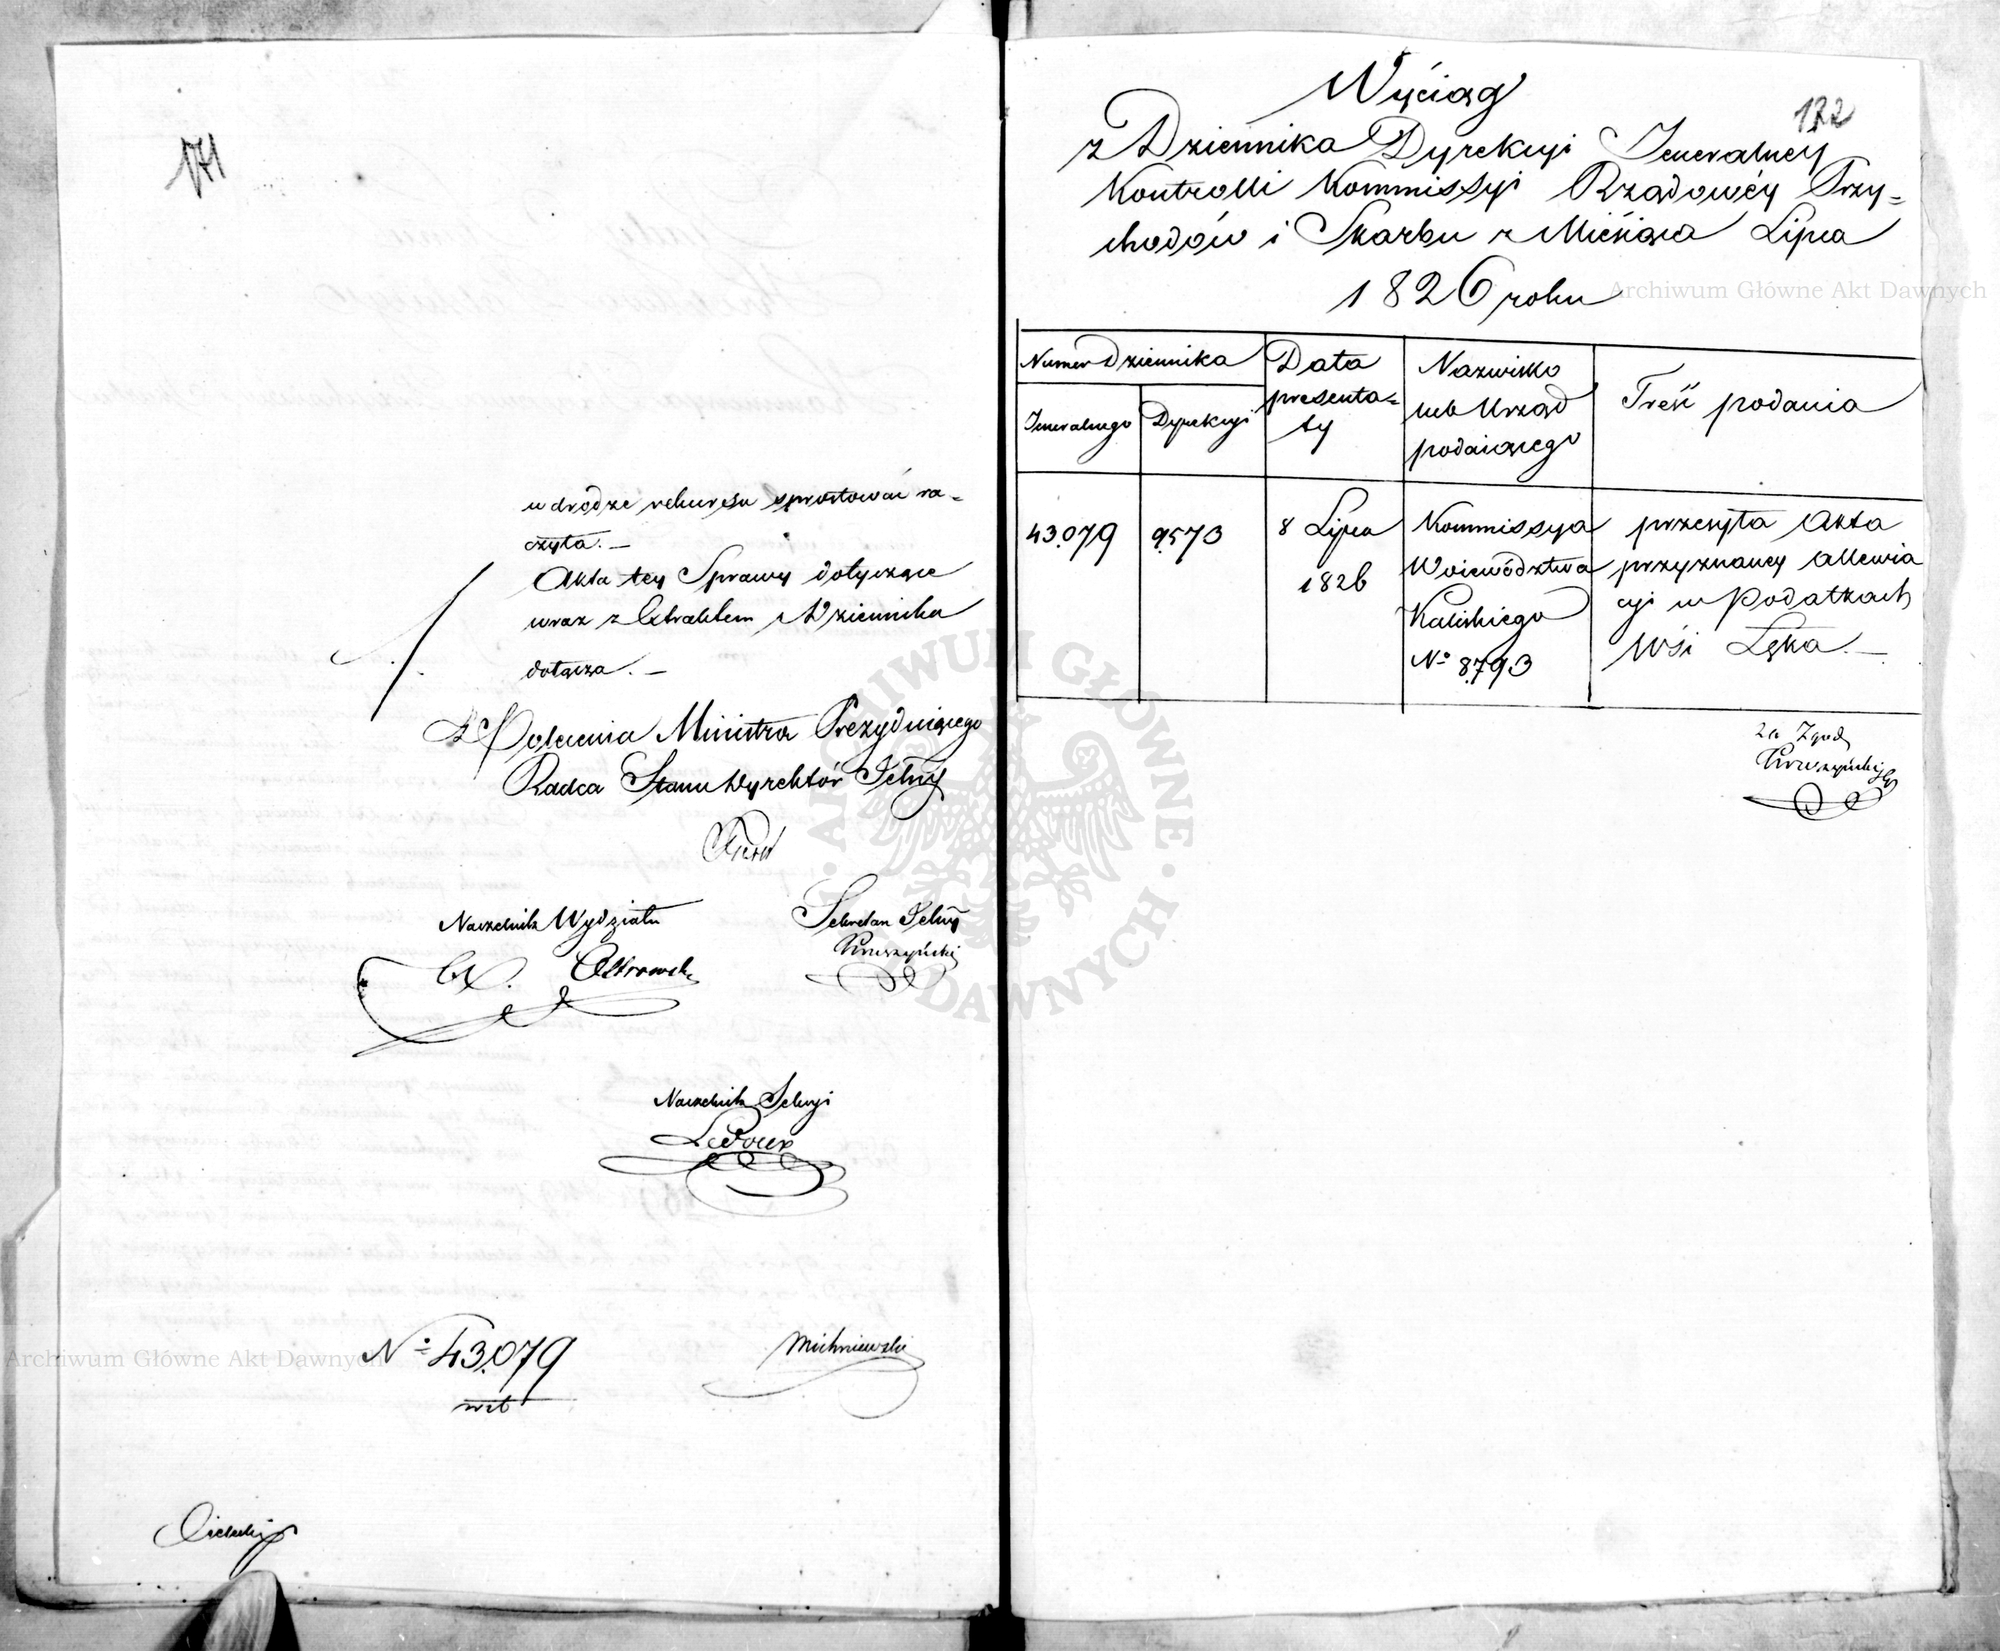 171
w drodze rekursu sprostować ra=
czyła. —
Akta tey Sprawy dotyczące
wraz z Extraktem Dziennika
dołącza. —
Z Polecenia Ministra Prezyduiącego
Radca Stanu Dyrektór Jełny
Naczelnik Wydziału
Sekretarz Jelny
Kruszyński
Ostrowski
Naczelnik Sekcyi
Ledoux
Nº 43.079
Michniewski
Archiwum Główne Akt Dawnych
172
Wyciąg
z Dziennika Dyrekcyi Jeneralney
Kontrolli Kommissyi Rządowéy Przy=
chodów i Skarbu z Miesiąca Lipca
1826 roku
Archiwum Główne Akt Dawnych
Numer Dziennika
Jeneralnego
Dyrekcyi
Data
presenta=
ty
Nazwisko
lub Urząd
podaiącego
Treść podania
43.079
9573
8 Lipca
1826
Kommissya
Woiewództwa
Kaliskiego
Nº 8793
przesyła Akta
przyznaney Allewia
cyi w Podatkach
Wsi Łęka. —
za Zgod
Kruszyński
ARCHIWUM GŁÓWNE AKT DAWNYCH